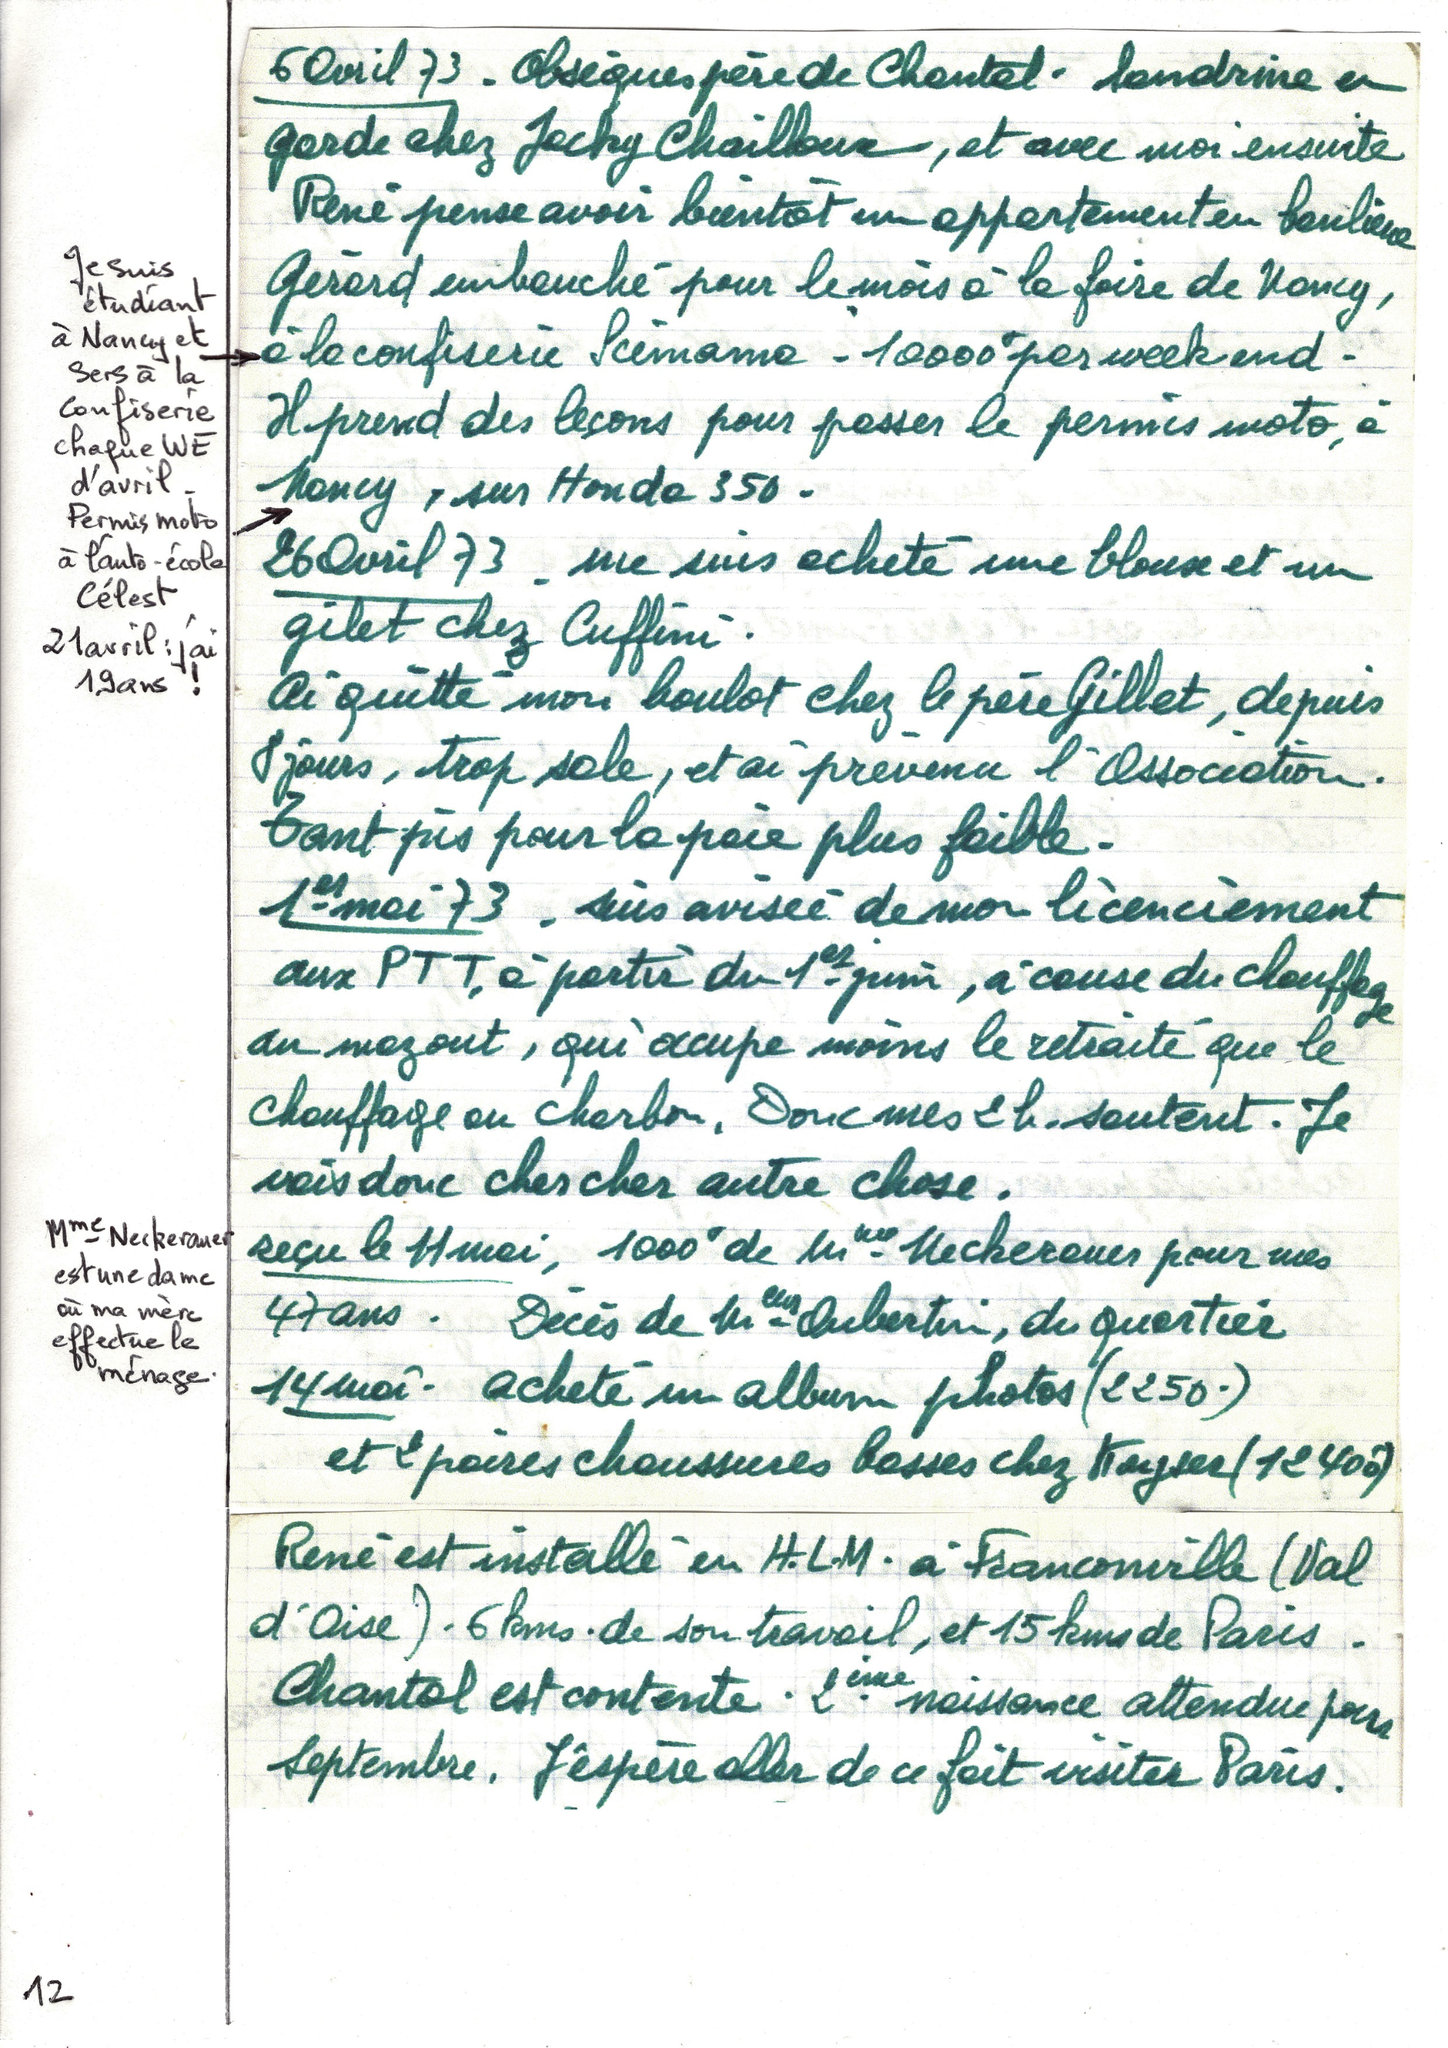 6 Avril 73 - Obsèques père de Chantal. Sandrine en
garde chez Jacky Chailloux, et avec moi ensuite
René pense avoir bientôt un appartement en banlieue
Gérard embauché pour le mois à la foire de Nancy,
à la confiserie Scémama - 10000° par week end -
Il prend des leçons pour passer le permis moto, à
Nancy, sur Honda 350.
26 Avril 73 - me suis acheté une blouse et un
gilet chez Cuffini.
Ai quitté mon boulot chez le père Gillet, depuis
8 jours, trop sale, et ai prévenu l'Association.
Tant pis pour la paie plus faible.
1er mai 73 - suis avisée de mon licenciement
aux PTT, à partir du 1er juin, à cause du chauffage
au mazout, qui occupe moins le retraité que le
chauffage au charbon. Donc mes 2 h. sautent. Je
vais donc chercher autre chose.
reçu le 11 mai, 1000° de Mme Neckerauer pour mes
47 ans. Décès de Aubertin, du quartier
14 mai. acheté un album photos (2250.)
et 2 paires chaussures basses chez Kayser (12400)
René est installé en H.L.M. à Franconville (Val
d'Oise). 6 kms. de son travail, et 15 kms de Paris.
Chantal est contente. 2ème naissance attendue pour
Septembre. J'espère aller de ce fait visiter Paris.
Je suis
étudiant
à Nancy et
sers à la
confiserie
chaque WE
d'avril -
Permis moto
à l'auto-école
Célest
21 avril : j'ai
19 ans !
Mme Neckerauer
est une dame
où ma mère
effectue le
ménage.
12